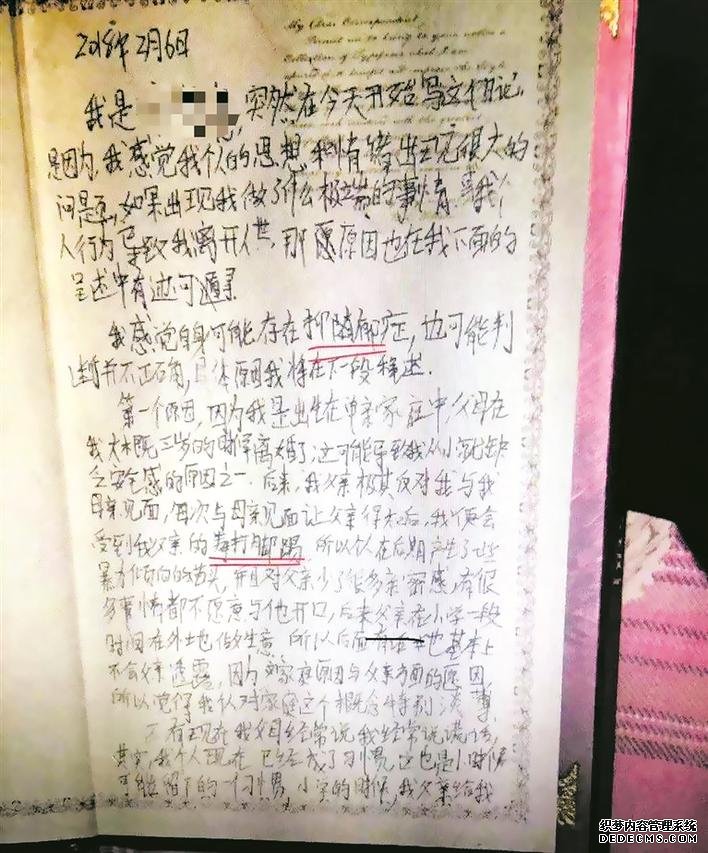 My Dear Correspondent
2018年2月6日
我是 ，突然在今天开始写这个日记，
是因为，我感觉我个人的思想和情绪出现很大的
问题，如果出现我做了什么极端的事情，或我个
人行为导致我离开人世，那愿原因也在我下面的
呈述中有迹可遁寻
我感觉自身可能存在抑随郁症，也可能判
断并不正确，具体原因我将在下一段称述．
第一个原因，因为我是出生在单亲家庭中，父母在
我大概三岁的时候离婚了；这可能导致我从小就缺
乏安全感的原因之一．后来，我父亲极其反对我与我
母亲见面，每次与母亲见面让父亲得知后，我便会
受到我父亲的毒打脚踢 所以个人在后期产生了些
暴力倾向的苗头，并且对父亲少了很多亲密感，有很
多事情都不愿意与他开口，后来父亲在小学一段
时间在外地做生意 所以后面 也基本上
不会父亲透露，因为对家庭原因与父亲方面的原因，
所以觉得我认对家庭这个概念特别淡薄．
还有现在我父母经常说我经常说谎话，
其实，我个人现在已经成了习惯，这也是小时候
可能留下的一个习惯，小学的时候，我父亲给我
织梦内容管理系统
DEDECMS.COM